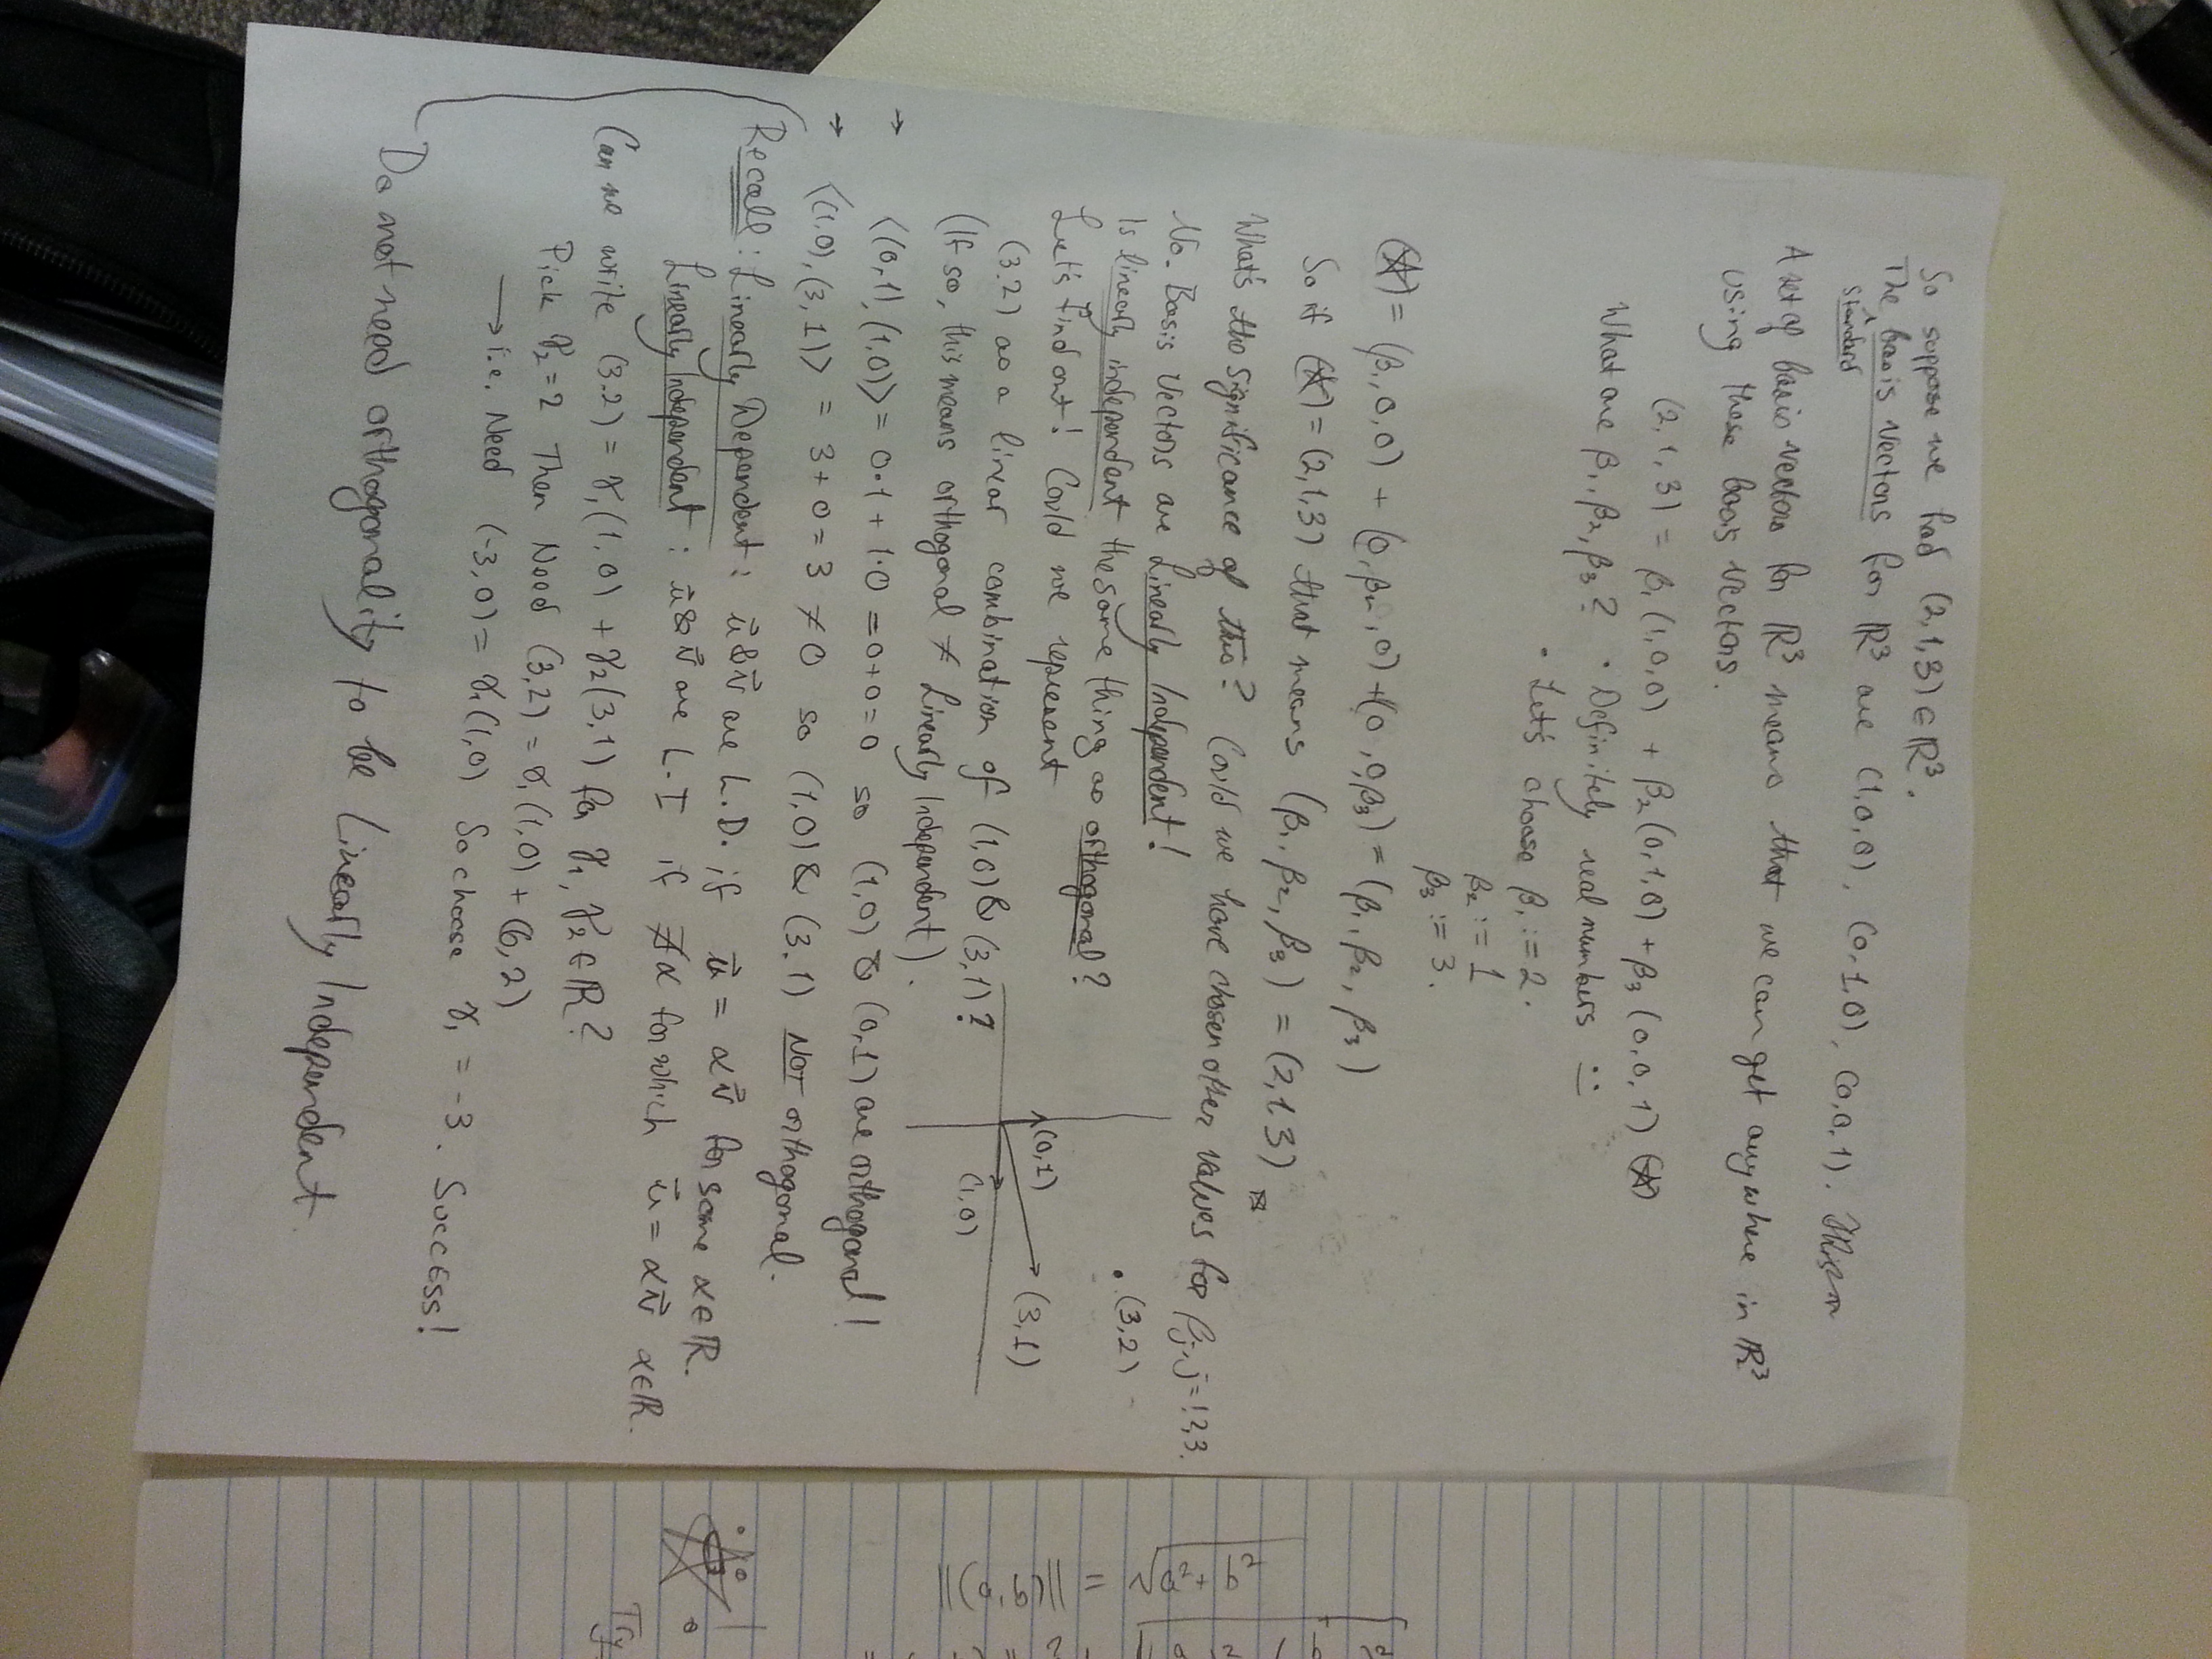 So suppose we had (2,1,3) ∈ ℝ³.
The standard basis vectors for ℝ³ are (1,0,0), (0,1,0), (0,0,1).
A set of basis vectors for ℝ³ means that we can get anywhere in ℝ³
using these basis vectors.
(2,1,3) = β₁(1,0,0) + β₂(0,1,0) + β₃(0,0,1) (*)
What are β₁, β₂, β₃? • Definitely real numbers :)
• Let's choose β₁ := 2.
β₂ := 1
β₃ := 3.
(*) = (β₁,0,0) + (0,β₂,0) + (0,0,β₃) = (β₁, β₂, β₃)
So if (*) = (2,1,3) that means (β₁, β₂, β₃) = (2,1,3)
What's the significance of this? Could we have chosen other values for βⱼ, j=1,2,3.
No. Basis vectors are Linearly Independent!
Is linearly independent the same thing as orthogonal?
Let's find out! Could we represent
(3,2) as a linear combination of (1,0) & (3,1)?
(0,1)
(1,0)
(3,1)
• (3,2)
(If so, this means orthogonal ≠ Linearly Independent).
→ <(0,1), (1,0)> = 0·1 + 1·0 = 0+0 = 0 so (1,0) & (0,1) are orthogonal!
→ <(1,0), (3,1)> = 3+0 = 3 ≠ 0 so (1,0) & (3,1) NOT orthogonal.
Recall: Linearly Dependent: u⃗ & v⃗ are L.D. if u⃗ = αv⃗ for some α∈ℝ.
Linearly Independent: u⃗ & v⃗ are L.I if ∄ α for which u⃗ = αv⃗ α∈ℝ.
Can we write (3,2) = γ₁(1,0) + γ₂(3,1) for γ₁, γ₂ ∈ ℝ?
Pick γ₂ = 2 Then Need (3,2) = γ₁(1,0) + (6,2)
→ i.e. Need (-3,0) = γ₁(1,0) So choose γ₁ = -3. Success!
Do not need orthogonality to be Linearly Independent.
‖(a,b)‖ = √a²+b²
Try